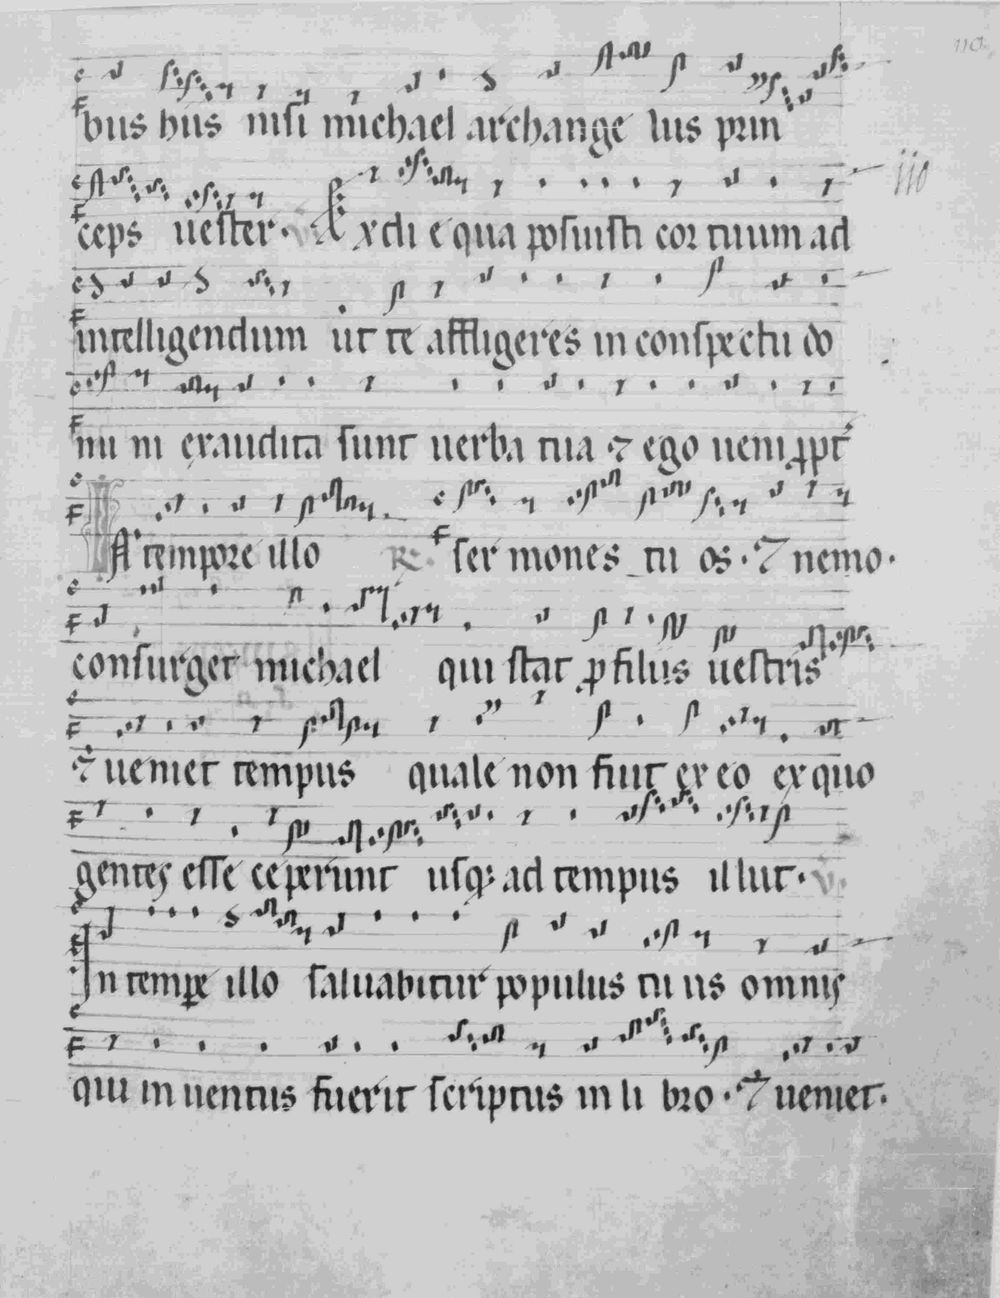 110
bus hus nisi michael archange lus prin
iio
ceps uester. V. Ex di e qua posuisti cor tuum ad
intelligendum ut te affligeres in conspectu do
mi ni exaudita sunt uerba tua ⁊ ego ueni ꝓpt
In tempore illo R. ser mones tu os. ⁊ nemo.
consurget michael qui stat ꝓ filiis uestris
⁊ ueniet tempus quale non fuit ex eo ex quo
gentes esse ceperunt usqꝫ ad tempus illut. V.
In tempe illo saluabitur populus tu us omnis
qui in uentus fuerit scriptus in li bro. ⁊ ueniet.